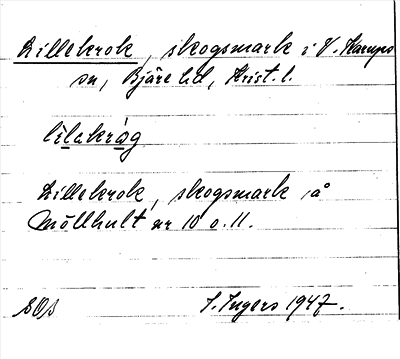 Lillekrok, skogsmark i V. Karups
sn, Bjäre hd, Krist. l.
lilakråg
Lillekrok, skogsmark å
Möllhult nr 10 o. 11.
I. Ingers 1947.